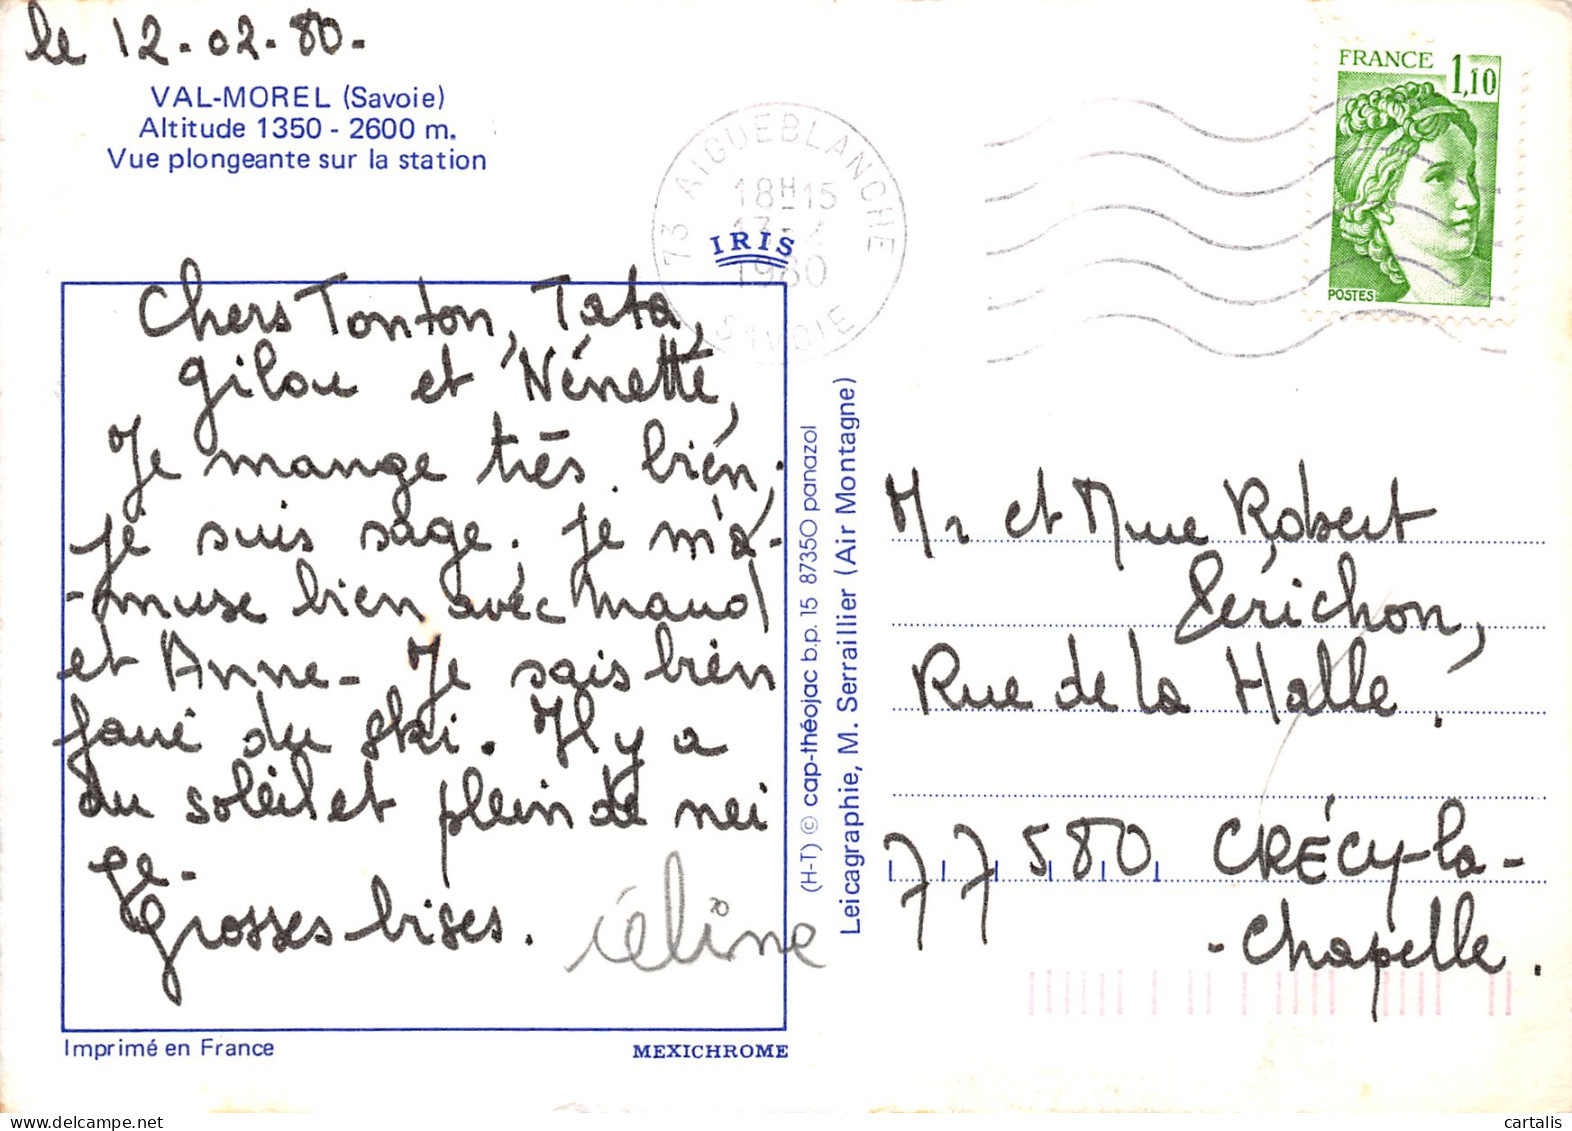 le 12-02-80-
VAL-MOREL (Savoie)
Altitude 1350 - 2600 m.
Vue plongeante sur la station
FRANCE 1,10
POSTES
73 AIGUEBLANCHE
18H15
1980
SAVOIE
IRIS
Chers Tonton, Tata,
Gilou et Nénette,
Je mange très bien,
je suis sage. Je m'a-
-muse bien avec Maud
et Anne- Je sais bien
faire du ski. Il y a
du soleil et plein de nei
ge.
Grosses bises. Céline
(H-T) © cap-théojac b.p. 15 87350 panazol
Leicagraphie, M. Serraillier (Air Montagne)
Mr et Mme Robert
Perichon,
Rue de la Halle.
77580 CRÉCY-la-
-Chapelle.
Imprimé en France
MEXICHROME
cartalis